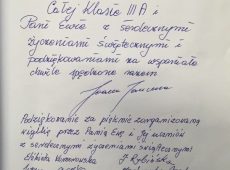 Całej klasie III A i
Pani Ewie z serdecznymi
życzeniami świątecznymi i
podziękowaniami za wspaniałe
chwile spędzone razem
Podziękowanie za pięknie zorganizowaną
wigilię przez Panią Ewę i Jej uczniów
z serdecznymi życzeniami świątecznymi
Elżbieta